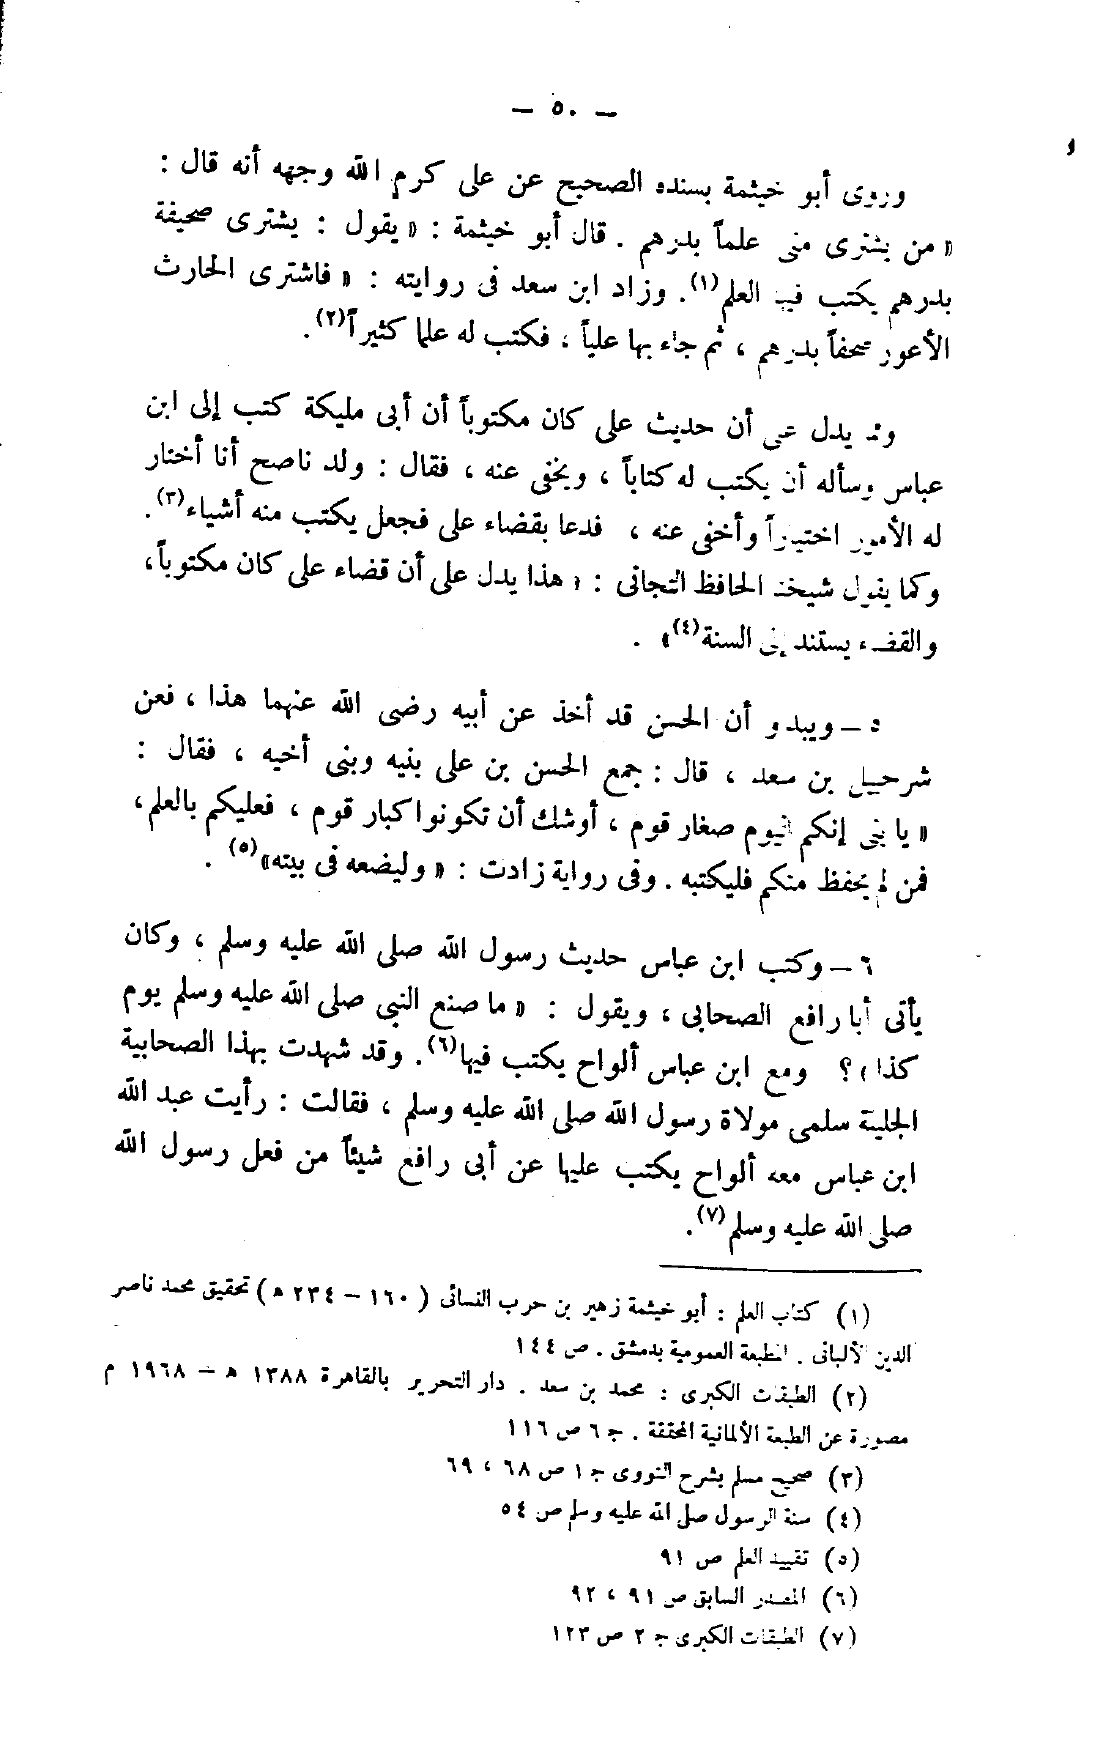 — ٥٠ —
وروى أبو خيثمة بسنده الصحيح عن على كرم الله وجهه أنه قال :
« من يشترى منى علماً بدرهم . قال أبو خيثمة : « يقول : يشترى صحيفة
بدرهم يكتب فيها العلم(١). وزاد ابن سعد فى روايته : « فاشترى الحارث
الأعور صحفاً بدرهم ، ثم جاء بها علياً ، فكتب له علما كثيراً(٢).
ومما يدل على أن حديث على كان مكتوباً أن أبى مليكة كتب إلى ابن
عباس وسأله أن يكتب له كتاباً ، ويخفى عنه ، فقال : ولد ناصح أنا أختار
له الأمور اختياراً وأخفى عنه ، فدعا بقضاء على فجعل يكتب منه أشياء(٣).
وكما يقول شيخنا الحافظ التجانى : « هذا يدل على أن قضاء على كان مكتوباً،
والقضاء يستند إلى السنة(٤)» .
٥ — ويبدو أن الحسن قد أخذ عن أبيه رضى الله عنهما هذا ، فعن
شرحبيل بن سعد ، قال : جمع الحسن بن على بنيه وبنى أخيه ، فقال :
« يا بنى إنكم اليوم صغار قوم ، أوشك أن تكونوا كبار قوم ، فعليكم بالعلم،
فمن لم يحفظ منكم فليكتبه . وفى رواية زادت : « وليضعه فى بيته»(٥) .
٦ — وكتب ابن عباس حديث رسول الله صلى الله عليه وسلم ، وكان
يأتى أبا رافع الصحابى ، ويقول : « ما صنع النبي صلى الله عليه وسلم يوم
كذا »؟ ومع ابن عباس ألواح يكتب فيها(٦). وقد شهدت بهذا الصحابية
الجليلة سلمى مولاة رسول الله صلى الله عليه وسلم ، فقالت : رأيت عبد الله
ابن عباس معه ألواح يكتب عليها عن أبى رافع شيئاً من فعل رسول الله
صلى الله عليه وسلم(٧).
(١) كتاب العلم : أبو خيثمة زهير بن حرب النسائى ( ١٦٠ — ٢٣٤ ه) تحقيق محمد ناصر
الدين الألبانى . المطبعة العمومية بدمشق . ص ١٤٤
(٢) الطبقات الكبرى : محمد بن سعد . دار التحرير بالقاهرة ١٣٨٨ ه — ١٩٦٨ م
مصورة عن الطبعة الألمانية المحققة . ج ٦ ص ١١٦
(٣) صحيح مسلم بشرح النووى ج ١ ص ٦٨ ، ٦٩
(٤) سنة الرسول صلى الله عليه وسلم ص ٥٤
(٥) تقييد العلم ص ٩١
(٦) المصدر السابق ص ٩١ ، ٩٢
(٧) الطبقات الكبرى ج ٢ ص ١٢٣